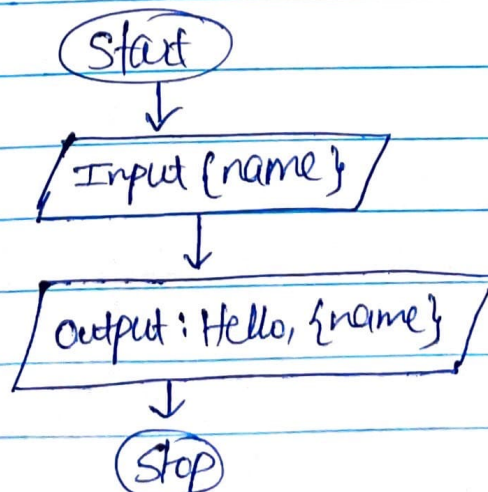 Start
Input {name}
output : Hello, {name}
Stop